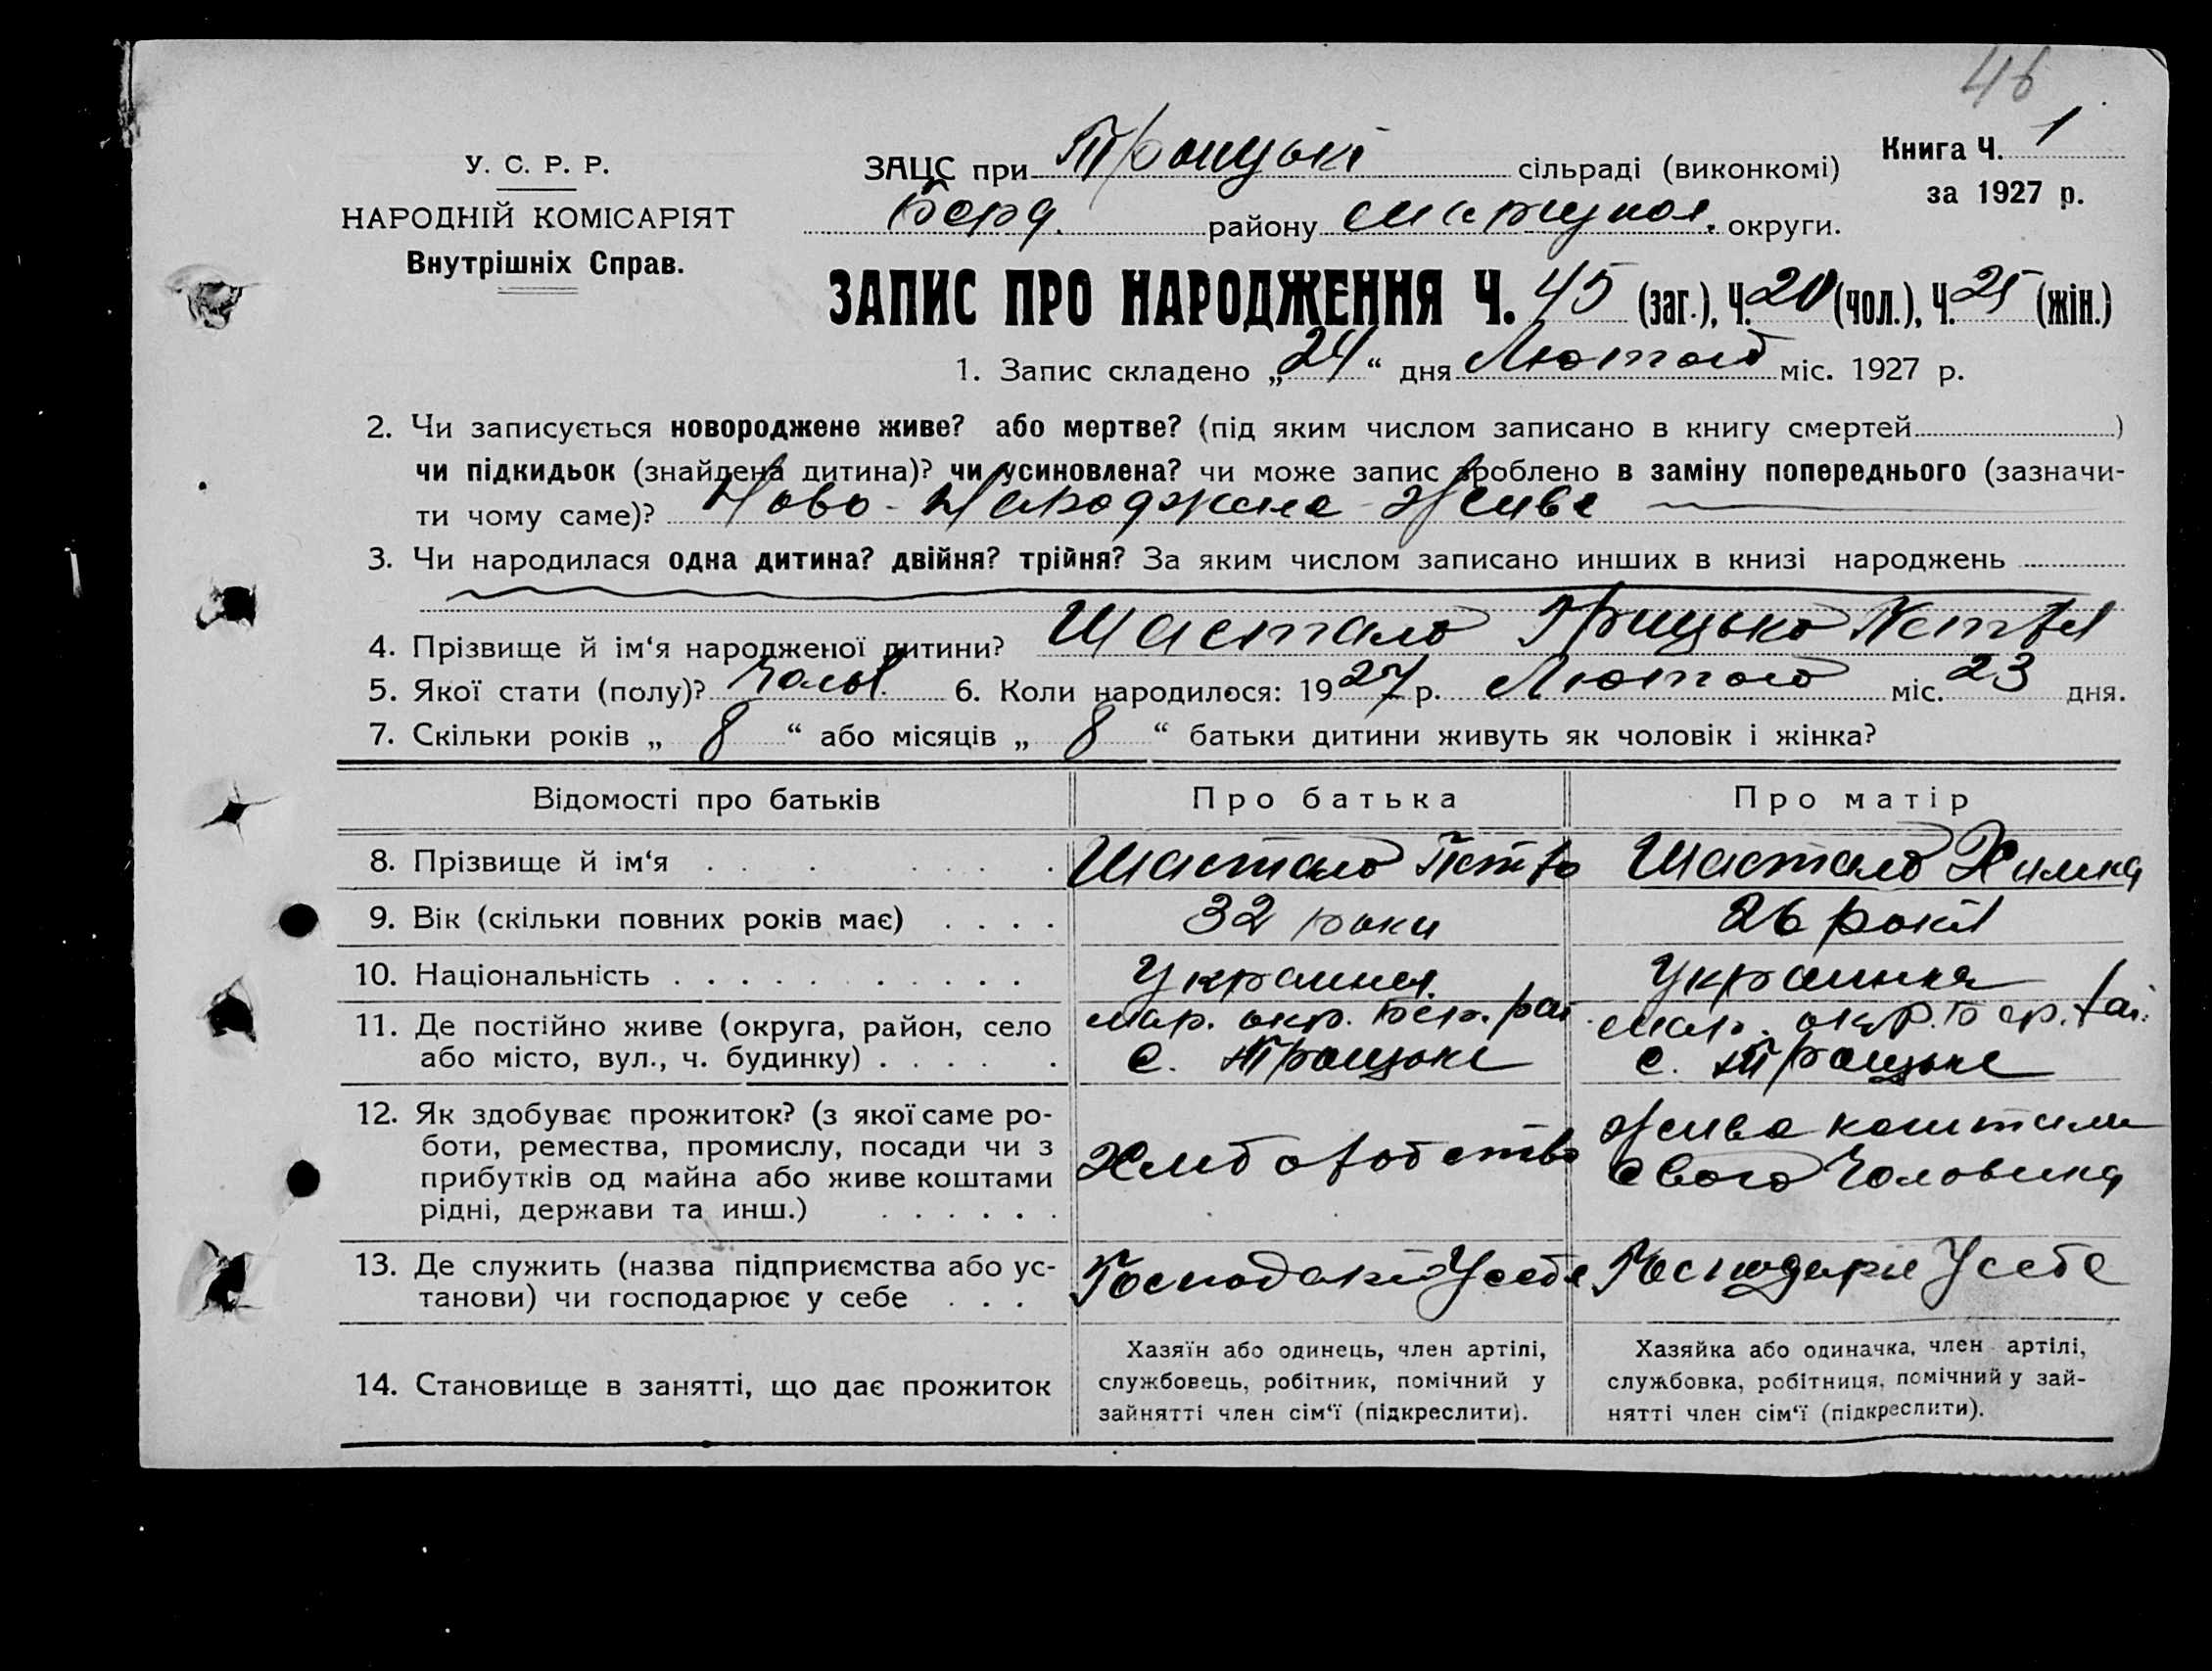 46
У. С. Р. Р.
НАРОДНІЙ КОМІСАРІЯТ
Внутрішніх Справ.
ЗАЦС при Троицькі сільраді (виконкомі)
Берд. району Мариупол. округи.
Книга Ч. 1
за 1927 р.
ЗАПИС ПРО НАРОДЖЕННЯ Ч. 45 (заг.), Ч. 20 (чол.), Ч. 25 (жін.)
1. Запис складено „24“ дня Лютого міс. 1927 р.
2. Чи записується новороджене живе? або мертве? (під яким числом записано в книгу смертей )
чи підкидьок (знайдена дитина)? чи усиновлена? чи може запис зроблено в заміну попереднього (зазначи-
ти чому саме)? Ново-Народжене живе
3. Чи народилася одна дитина? двійня? трійня? За яким числом записано инших в книзі народжень
4. Прізвище й ім‘я народженої дитини? Шастало Грицько Петров
5. Якої стати (полу)? Чолов. 6. Коли народилося: 1927 р. Лютого міс. 23 дня.
7. Скільки років „ 8 “ або місяців „ 8 “ батьки дитини живуть як чоловік і жінка?
Відомості про батьків Про батька Про матір
8. Прізвище й ім‘я Шастало Петро Шастало Химка
9. Вік (скільки повних років має) 32 роки 26 рокив
10. Національність Украинец Украинка
11. Де постійно живе (округа, район, село
або місто, вул., ч. будинку)
Мар. окр. Бер. рай.
с. Троицьке
Мар. окр. Бер. рай.
с. Троицьке
12. Як здобуває прожиток? (з якої саме ро-
боти, ремества, промислу, посади чи з
прибутків од майна або живе коштами
рідні, держави та инш.)
Хлиборобство
живе коштами
Свого Чоловика
13. Де служить (назва підприємства або ус-
танови) чи господарює у себе
Господарює Усебе
Господарює Усебе
14. Становище в занятті, що дає прожиток
Хазяїн або одинець, член артілі,
службовець, робітник, помічний у
зайнятті член сім‘ї (підкреслити).
Хазяйка або одиначка, член артілі,
службовка, робітниця, помічний у зай-
нятті член сім‘ї (підкреслити).